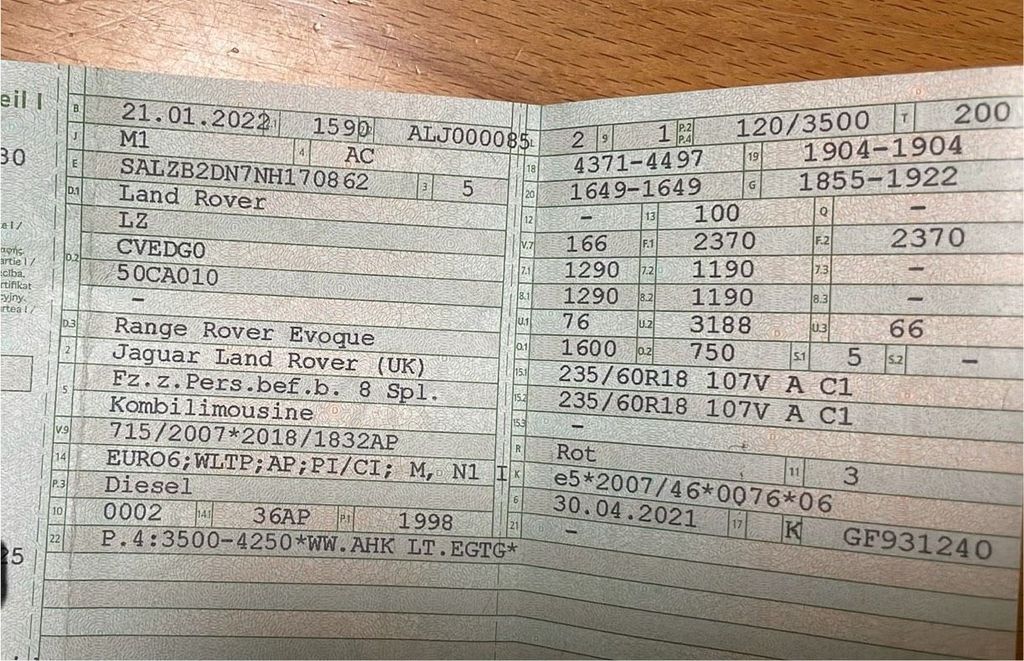 eil I
B 21.01.2022 2.1 1590 2.2 ALJ000085
J M1 4 AC
30
E SALZB2DN7NH170862 3 5
D.1 Land Rover
LZ
D.2 CVEDG0
50CA010
–
D.3 Range Rover Evoque
2 Jaguar Land Rover (UK)
5 Fz.z.Pers.bef.b. 8 Spl.
Kombilimousine
V.9 715/2007*2018/1832AP
14 EURO6;WLTP;AP;PI/CI; M, N1 I
P.3 Diesel
10 0002 14.1 36AP P.1 1998
22 P.4:3500-4250*WW.AHK LT.EGTG*
e I /
artie I /
rtifikat
cyjny.
rtea I /
L 2 9 1 P.2 P.4 120/3500 T 200
18 4371-4497 19 1904-1904
20 1649-1649 G 1855-1922
12 – 13 100 Q –
V.7 166 F.1 2370 F.2 2370
7.1 1290 7.2 1190 7.3 –
8.1 1290 8.2 1190 8.3 –
U.1 76 U.2 3188 U.3 66
O.1 1600 O.2 750 S.1 5 S.2 –
15.1 235/60R18 107V A C1
15.2 235/60R18 107V A C1
15.3 –
R Rot 11 3
K e5*2007/46*0076*06
6 30.04.2021 17 K GF931240
21 –